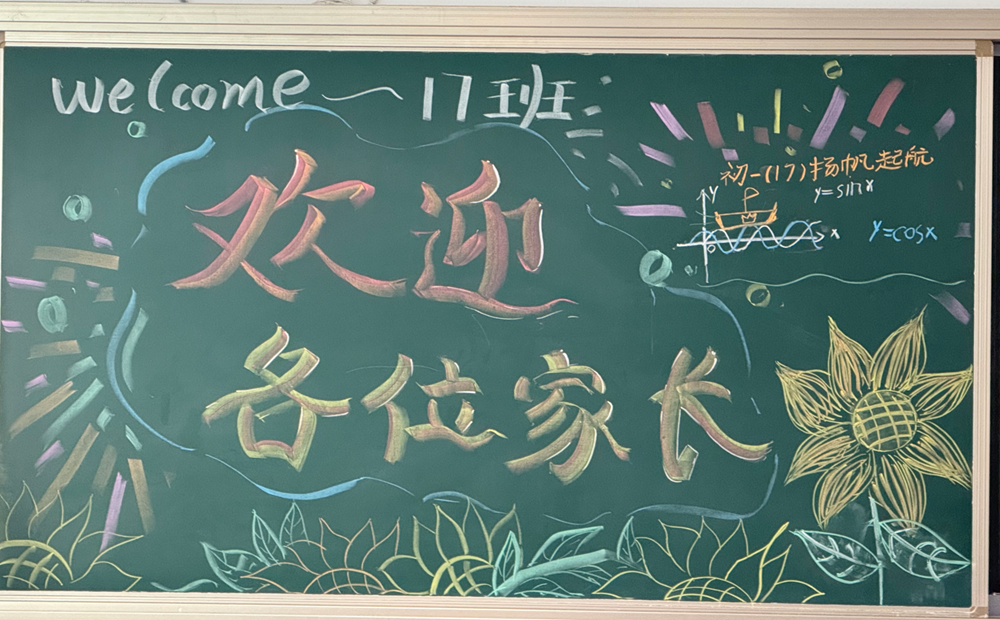 welcome ~ 17班
欢迎
各位家长
初一(17)扬帆起航
y=sinx
y
x
y=cosx